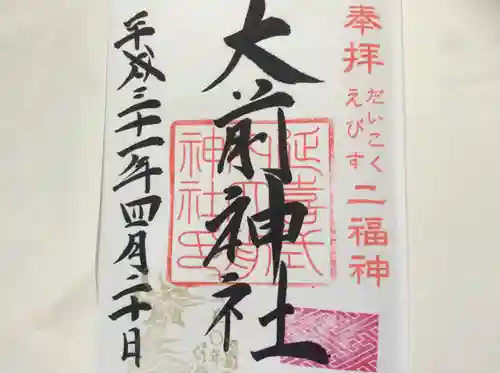 奉拝
だいこく
えびす
二福神
大前神社
延喜式
内
神社
平成三十一年四月二十日